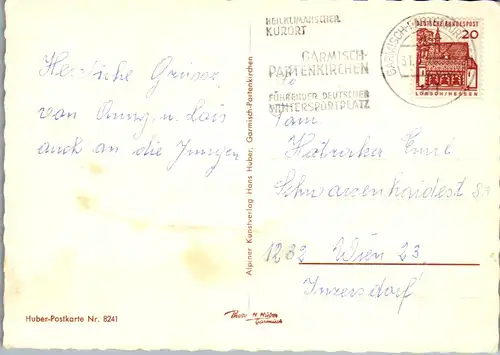 HEILKLIMATISCHER
KURORT
GARMISCH-
PARTENKIRCHEN
FÜHRENDER DEUTSCHER
WINTERSPORTPLATZ
GARMISCH-PARTENKIRCHEN
31.
DEUTSCHE BUNDESPOST
20
LORSCH/HESSEN
Herzliche Grüsse
von u. Lois
auch an die Jungen
Fam
Emil
1232 Wien 23,
Inzersdorf
Alpiner Kunstverlag Hans Huber, Garmisch-Partenkirchen
Huber-Postkarte Nr. 8241
Photo H. Huber
Garmisch